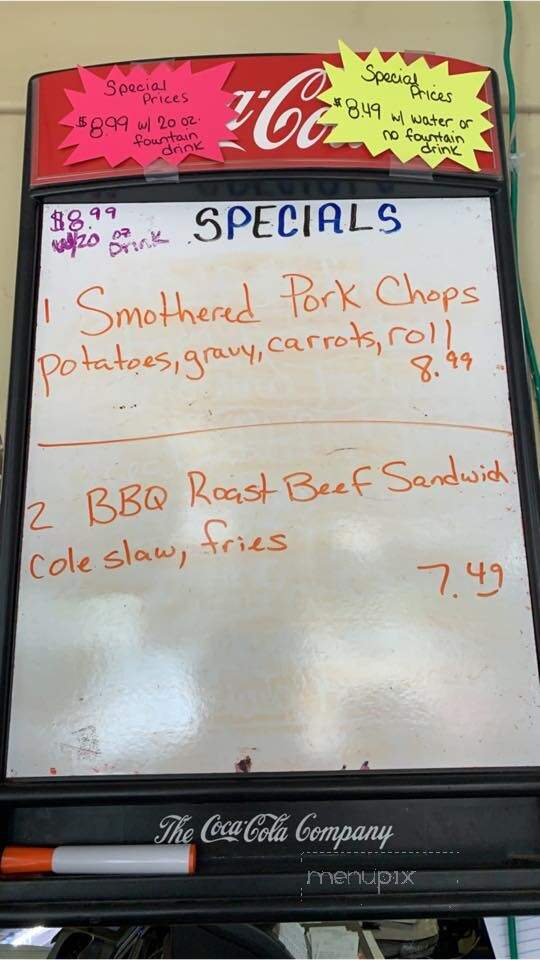 Special
Prices
$8.99 w/ 20 oz.
fountain
drink
a-Co
Special
Prices
$8.49 w/ water or
no fountain
drink
$8.99
w/20 oz
Drink
SPECIALS
1 Smothered Pork Chops
potatoes, gravy, carrots, roll
8.99
2 BBQ Roast Beef Sandwich
Cole slaw, fries
7.49
The Coca-Cola Company
menupix